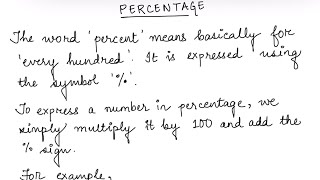 PERCENTAGE
The word 'percent' means basically for
'every hundred'. It is expressed using
the symbol '%'.
To express a number in percentage, we
simply multiply it by 100 and add the
% sign.
For example,